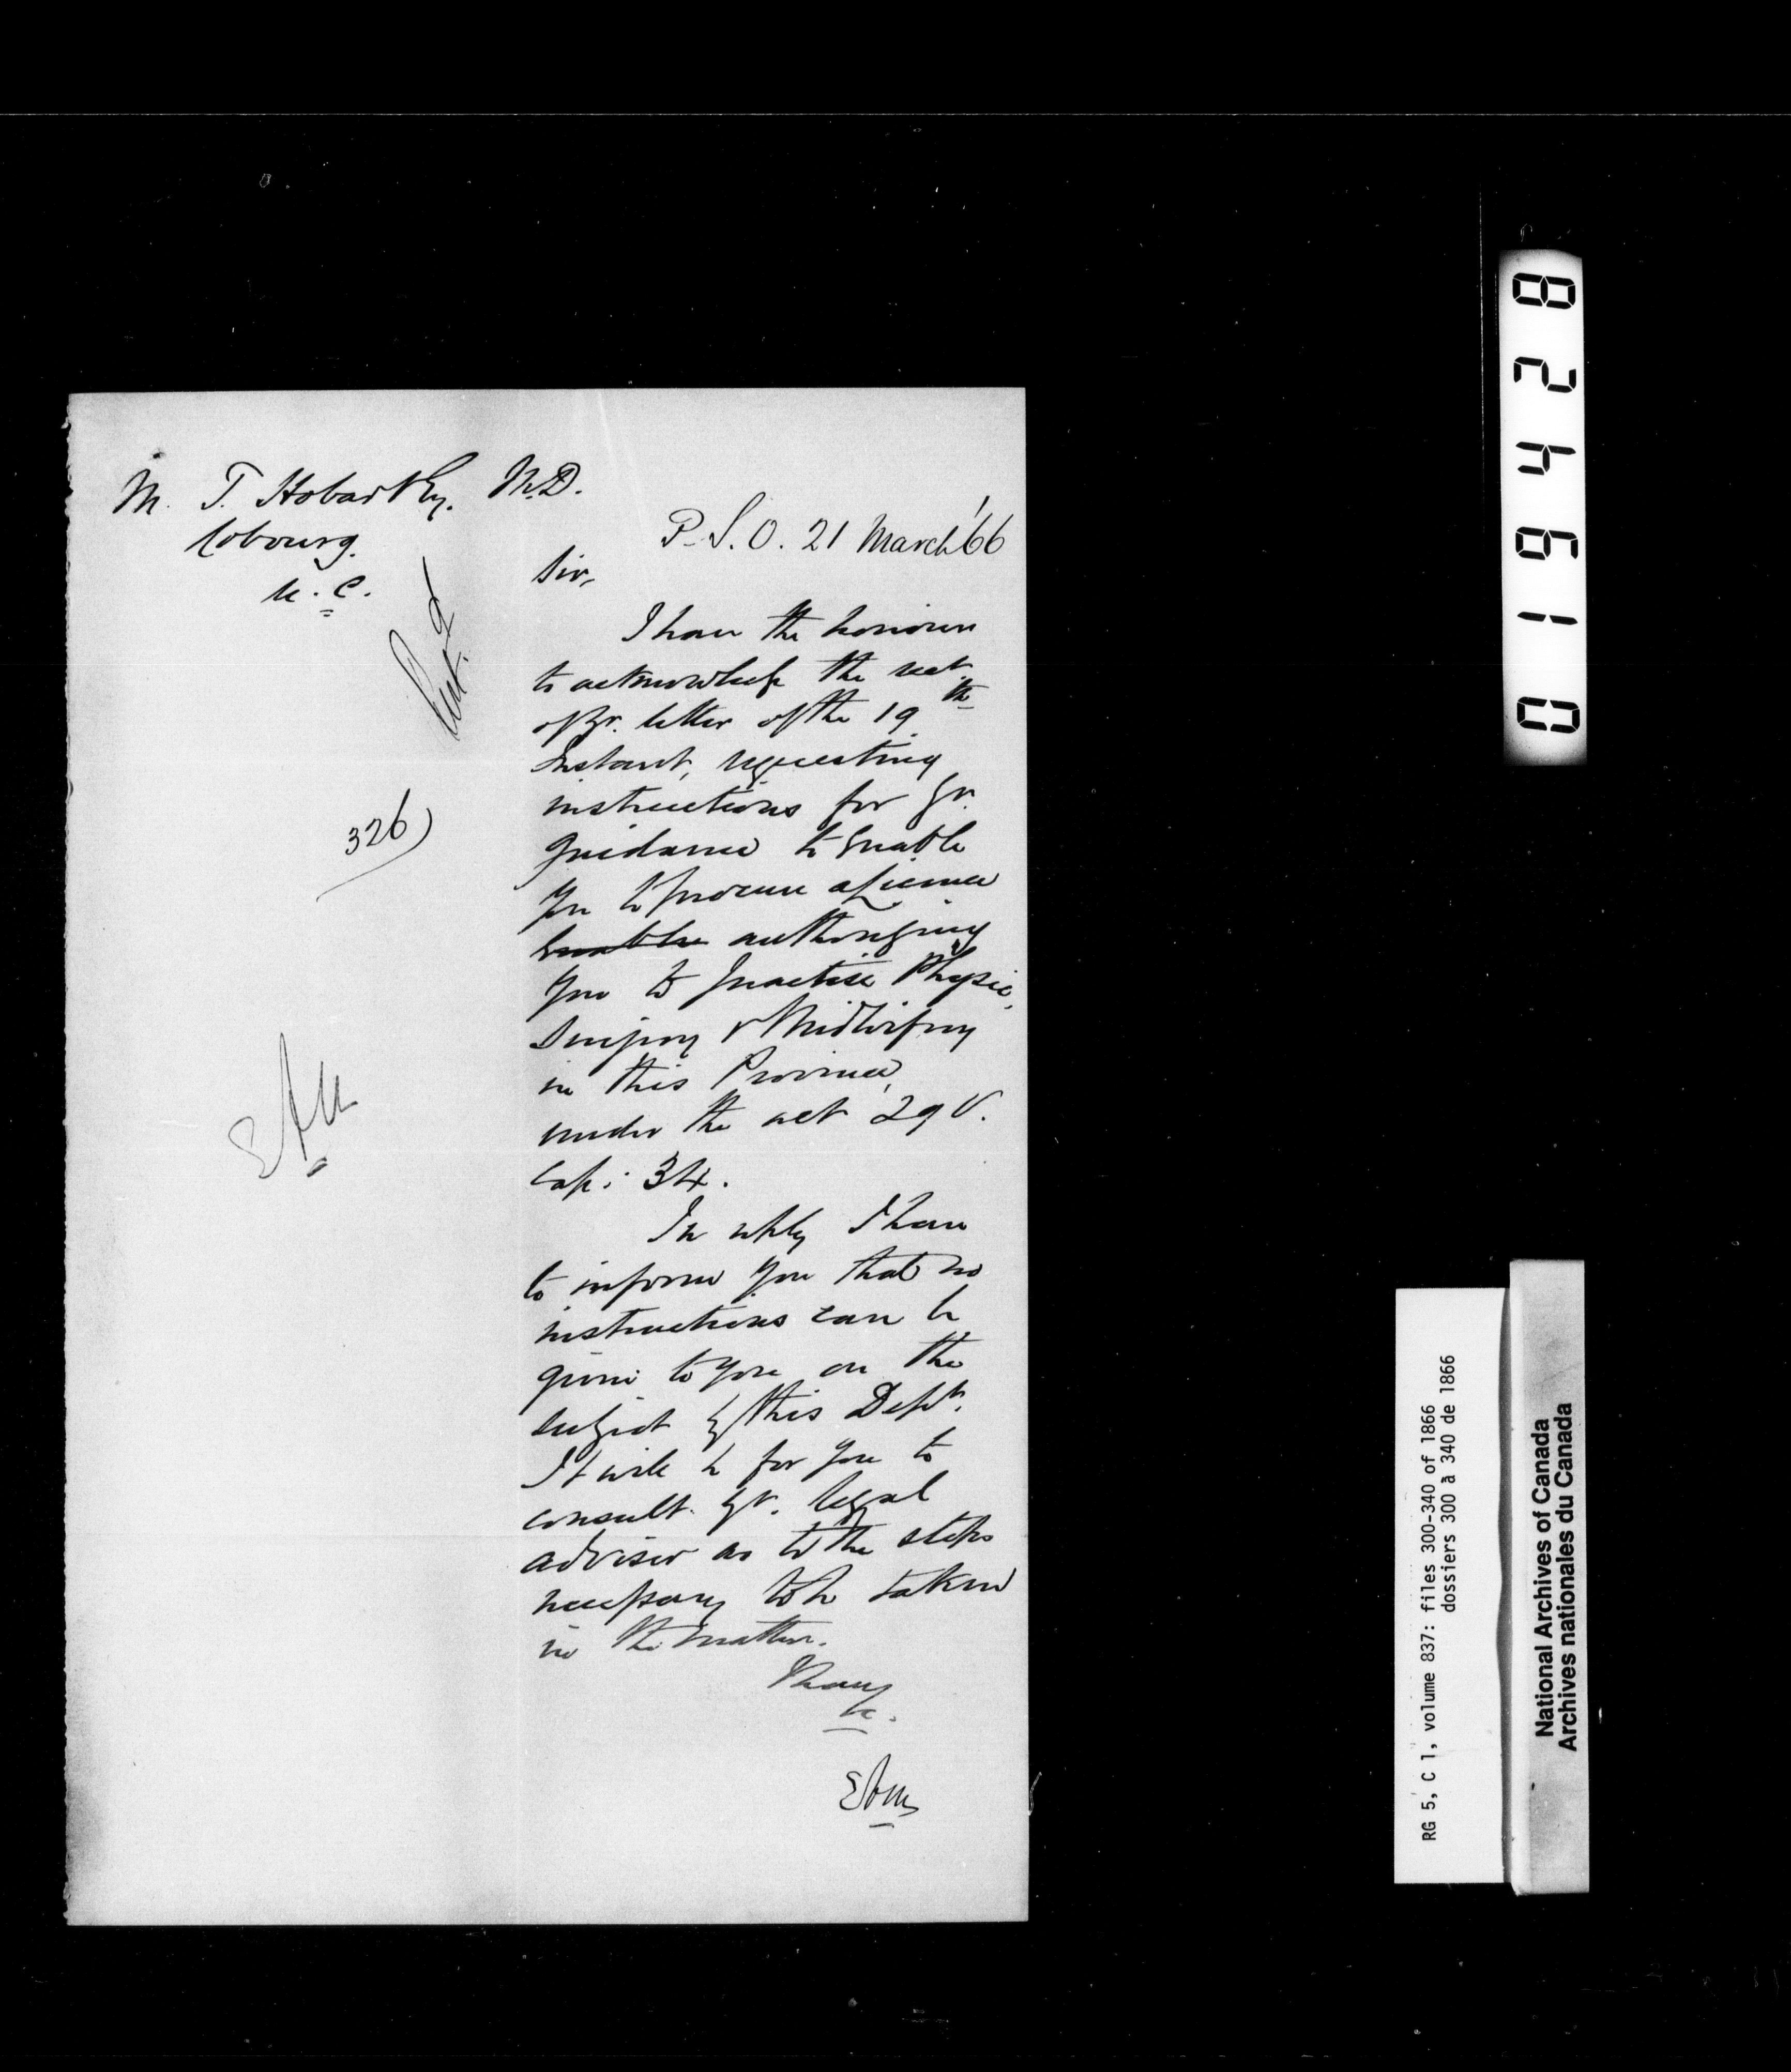 M. T. Hobart Esq. M.D.
Cobourg.
U. C.
P. S. O. 21 March '66
Sir,
I have the honour
to acknowledge the rect.
of yr. letter of the 19th
Instant, requesting
instructions for yr.
guidance to enable
you to procure a License
enable authorizing
you to practise Physic,
Surgery & Midwifery
in this Province,
under the act 29 V.
Cap: 34.
In reply I have
to inform you that no
instructions can be
given to you on the
subject by this Dept.
It will be for you to
consult yr. legal
adviser as to the steps
necessary to be taken
in the matter.
I have
&c.
326
RG 5, C 1, volume 837: files 300-340 of 1866
dossiers 300 à 340 de 1866
National Archives of Canada
Archives nationales du Canada
016428